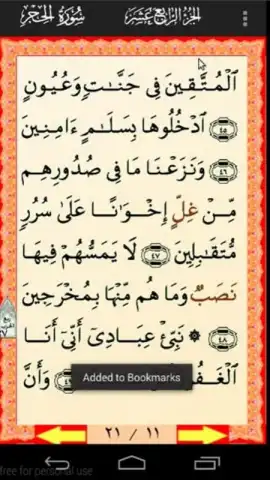 سُورَةُ الحِجْر الجزء الرابع عشر
الْمُتَّقِينَ فِي جَنَّٰتٍ وَعُيُونٍ
٤٥ ادْخُلُوهَا بِسَلَٰمٍ ءَامِنِينَ
٤٦ وَنَزَعْنَا مَا فِي صُدُورِهِم
مِّنْ غِلٍّ إِخْوَٰنًا عَلَىٰ سُرُرٍ
مُّتَقَٰبِلِينَ ٤٧ لَا يَمَسُّهُمْ فِيهَا
نَصَبٌ وَمَا هُم مِّنْهَا بِمُخْرَجِينَ
٤٨ ۞ نَبِّئْ عِبَادِي أَنِّي أَنَا
وَأَنَّ
Added to Bookmarks
١١ / ٢١
free for personal use